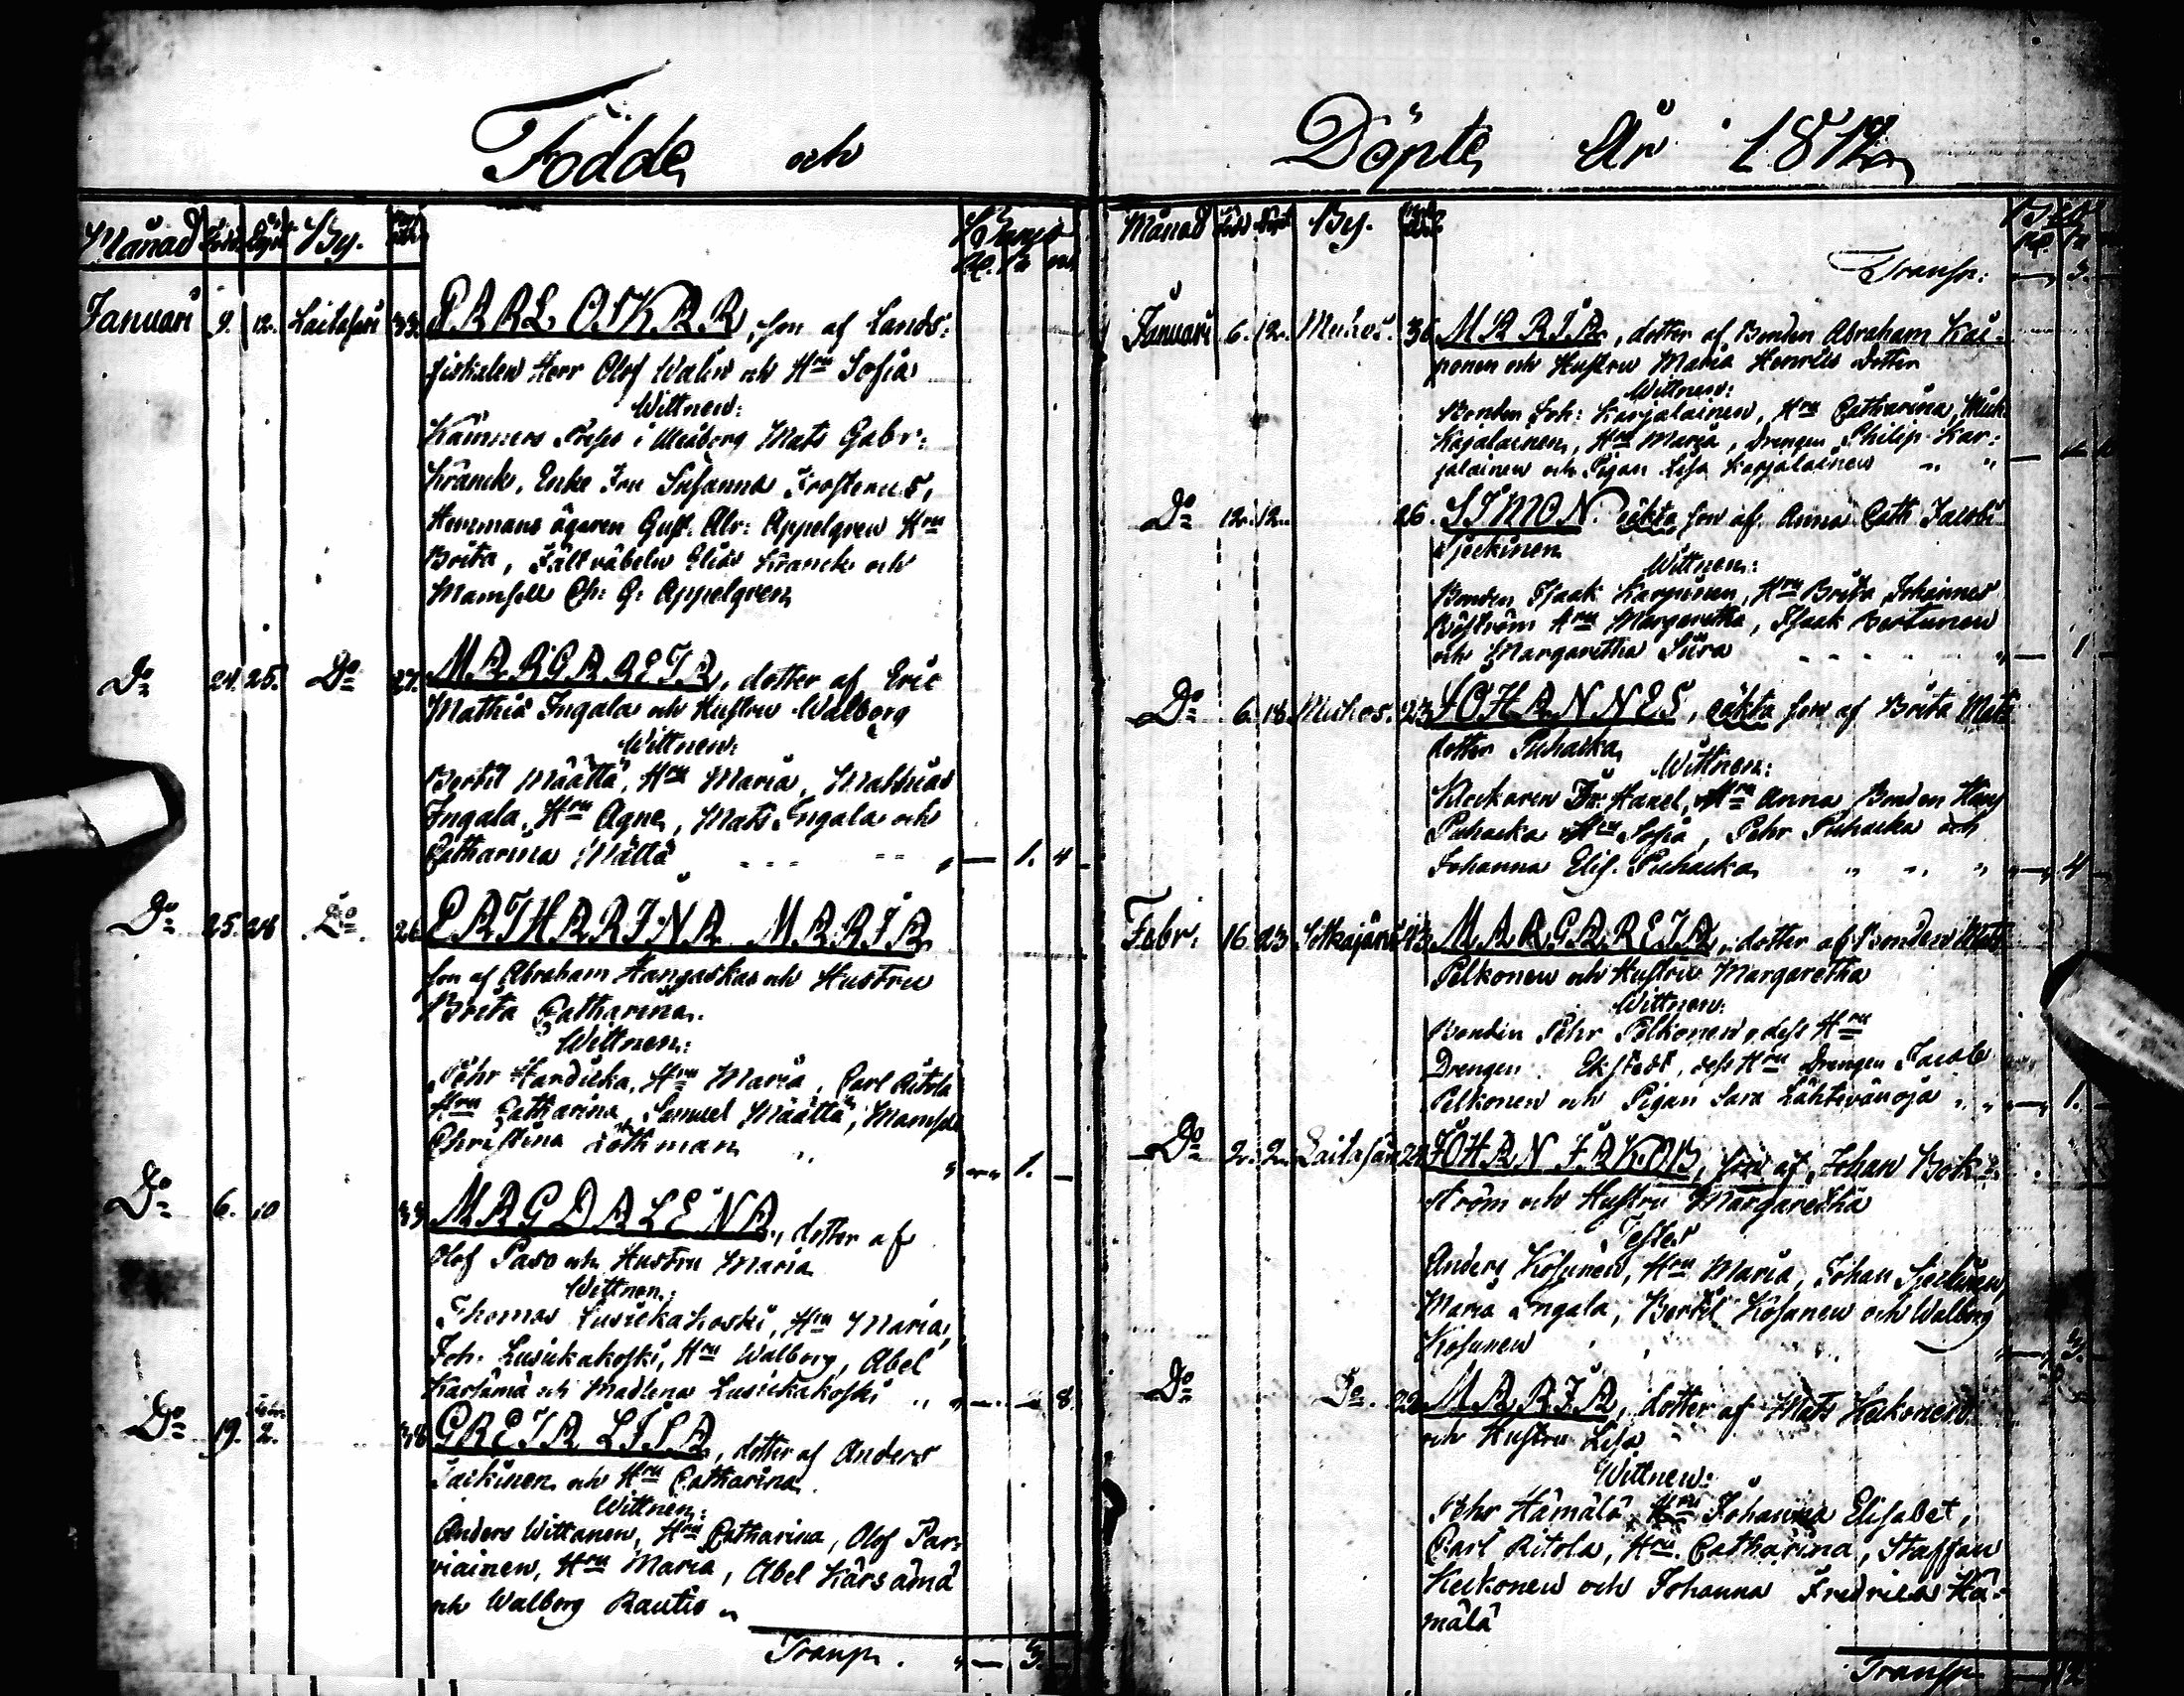 Födde och
Månad Född Döpt By.
Januari 9. 12. Laitasaari 33. CARL OSKAR, son af Lands-
fiskalen Herr Olof Walin och Hru Sofia
Wittnen:
Kämners Preses i Uleåborg Mats Gabr:
Kranck, Enke Fru Susanna Frosterus,
Hemmans ägaren Gust. Adr: Appelgren Hru
Brita, Fältväbeln Elias Kranck och
Mamsell Ch: G: Appelgren
Do 24. 25. Do 27. MARGARETA, dotter af Eric
Mathis Ingala och Hustru Walborg
Wittnen:
Bertil Määttä, Hru Maria, Mathias
Ingala, Hru Agne, Mats Ingala och
Catharina Mättä — 1. 4
Do 25. 28 Do 26 CATHARINA MARIA
son af Abraham Kangaskas och Hustru
Brita Catharina.
Wittnen:
Pehr Hardicka, Hru Maria, Carl Ritola
Hru Catharina, Samuel Määttä, Mamsell
Christina Löthman — 1. —
Do 6. 10 33 MAGDALENA, dotter af
Olof Paso och Hustru Maria
Wittnen:
Thomas Lusickakoski, Hru Maria,
Joh. Lusickakoski, Hru Walborg, Abel
Kärsämä och Madlena Lusickakoski — 8.
Do 19. 2. 38 GRETA LISA, dotter af Anders
Jackinen och Hru Catharina
Wittnen:
Anders Wittanen, Hru Catharina, Olof Par-
viainen, Hru Maria, Abel Kärsämä
och Walborg Rautio
Transp. — 3. —
Döpte År 1812
Månad Född Döpt By.
Transp: — 3. —
Januari 6. 12. Muhos. 36 MARIA, dotter af Bonden Abraham Kai-
nonen och Hustru Maria Henrics dotter
Wittnen:
Bonden Joh: Karjalainen, Hru Catharina, Mich:
Kajalainen, Hru Maria, Drengen Philip Kar-
jalainen och Pigan Lisa Karjalainen
Do 12. 12. 26. SIMON. oäkta son af Anna Cath Jacobs
Sjeckinen
Wittnen:
Bonden Isaak Karpinen, Hru Brita, Johannes
Boström Hru Margaretha, Isaak Bertunen
och Margaretha Siira — 1 —
Do 6. 18. Muhos. 23 JOHANNES, oäkta son af Brita Mats
dotter Puhacka
Wittnen:
Klockaren Fr: Haxel, Hru Anna Bonden Hans
Puhacka Hru Sofia, Pehr Puhacka och
Johanna Elis. Puhacka — 4 —
Febr. 16. 23 Sotkajärvi 43 MARGARETA, dotter af Bonden Mats
Pelkonen och Hustru Margaretha
Wittnen:
Bonden Pehr Pelkonen, dess Hru
Drengen Ekstedt, dess Hru Drengen Jacob
Pelkonen och Pigan Sara Lähtevänoja — 1. —
Do 2. 2. Laitasaari 28 JOHAN JAKOB, son af Johan Bok-
ström och Hustru Margaretha
Testes
Anders Kosunen, Hru Maria, Johan Sjeckinen,
Maria Ingala, Bertil Kosunen och Walborg
Kosunen — 3.
Do Do. 22 MARIA, dotter af Mats Keckonen
och Hustru Lisa
Wittnen:
Pehr Hämälä Hru Johanna Elisabet,
Carl Ritola, Hru Catharina, Staffan
Keckonen och Johanna Fredrica Hä-
mälä
Transp — 12